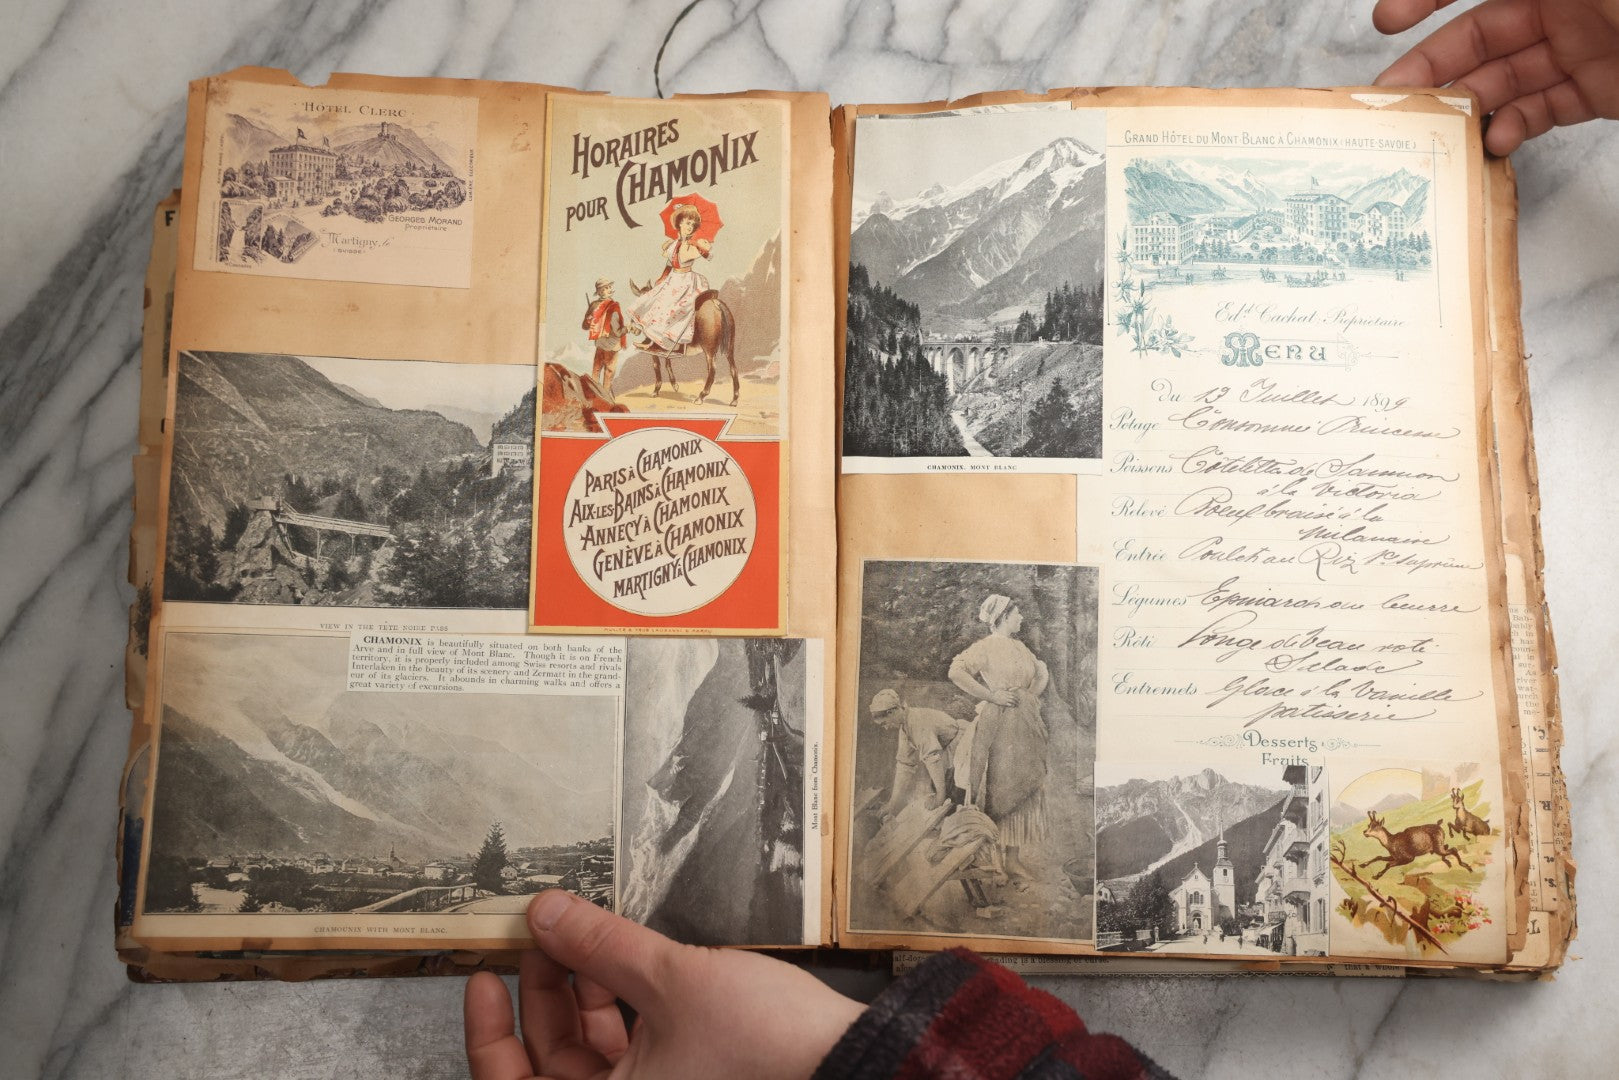 HÔTEL CLERC
GEORGES MORAND
Propriétaire
Martigny, le
(SUISSE)
LUMIÈRE ÉLECTRIQUE
HORAIRES
POUR CHAMONIX
PARIS À CHAMONIX
AIX-LES-BAINS À CHAMONIX
ANNECY À CHAMONIX
GENÈVE À CHAMONIX
MARTIGNY À CHAMONIX
VIEW IN THE TÊTE NOIRE PASS
CHAMONIX is beautifully situated on both banks of the
Arve and in full view of Mont Blanc. Though it is on French
territory, it is properly included among Swiss resorts and rivals
Interlaken in the beauty of its scenery and Zermatt in the grand-
eur of its glaciers. It abounds in charming walks and offers a
great variety of excursions.
CHAMOUNIX WITH MONT BLANC.
Mont Blanc from Chamonix.
CHAMONIX. MONT BLANC
GRAND HÔTEL DU MONT-BLANC À CHAMONIX (HAUTE-SAVOIE)
Edd Cachat, Propriétaire
MENU
Du 13 Juillet 1899
Potage Consommé Princesse
Poissons Côtelettes de Saumon
à la Victoria
Relevé Boeuf braisé à la
Milanaise
Entrée Poulet au Riz Sce Suprême
Légumes Epinards au beurre
Rôti Longe de veau roti
Salade
Entremets Glace à la Vanille
patisserie
Desserts
Fruits